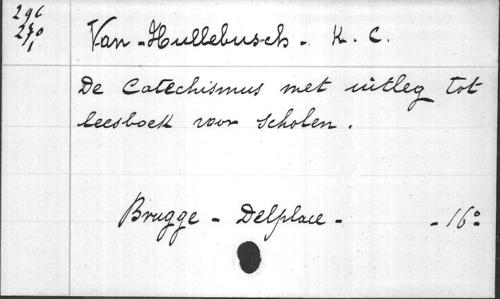 296
270
1
Van-Hullebusch - K. C.
De Catechismus met uitleg tot
leesboek voor scholen.
Brugge - Delplace - - 16°